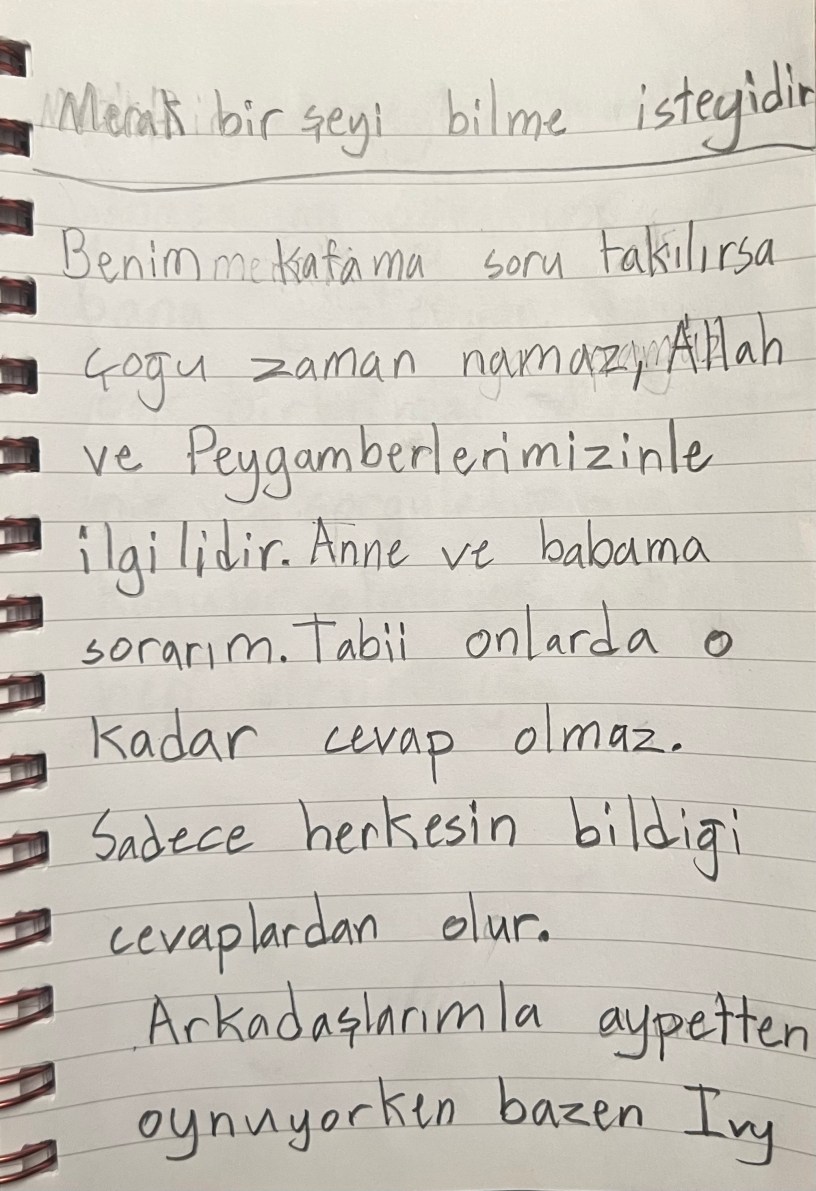 Merak bir şeyi bilme isteğidir
Benim kafama soru takılırsa
çoğu zaman namaz, Allah
ve Peygamberlerimizinle
ilgilidir. Anne ve babama
sorarım. Tabii onlarda o
kadar cevap olmaz.
Sadece herkesin bildiği
cevaplardan olur.
Arkadaşlarımla aypetten
oynuyorken bazen Ivy